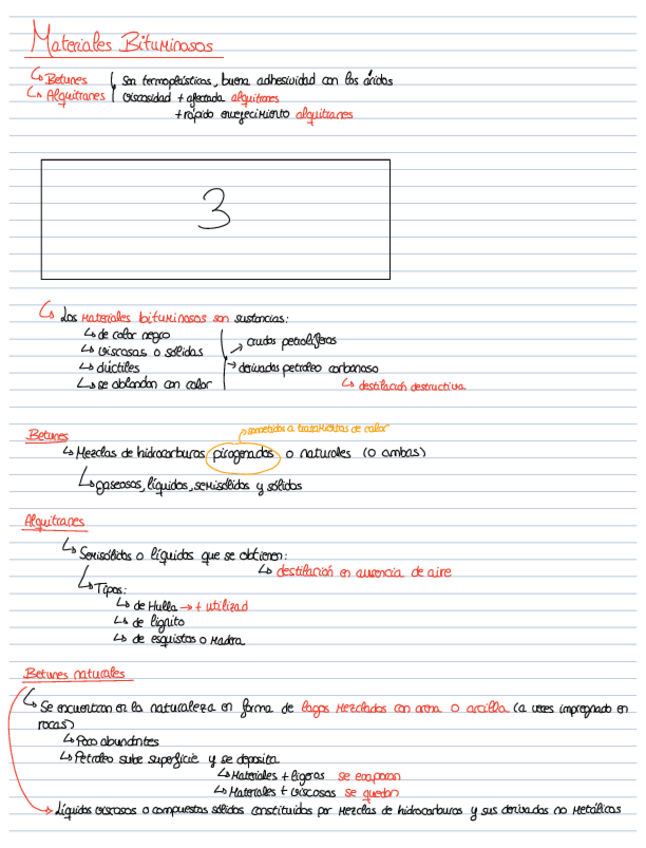 Materiales Bituminosos
↳ Betunes
↳ Alquitranes
Son termoplásticos, buena adhesividad con los áridos
Viscosidad + afectada alquitranes
+ rápido envejecimiento alquitranes
3
↳ Los materiales bituminosos son sustancias:
↳ de color negro
↳ viscosas o sólidas
↳ dúctiles
↳ se ablandan con calor
→ crudos petrolíferos
→ derivados petroleo carbonoso
↳ destilación destructiva
Betunes
→ sometidos a tratamientos de calor
↳ Mezclas de hidrocarburos pirogenados o naturales (o ambas)
↳ gaseosos, líquidos, semisólidos y sólidos
Alquitranes
↳ Semisólidos o líquidos que se obtienen:
↳ destilación en ausencia de aire
↳ Tipos:
↳ de Hulla → + utilizad
↳ de lignito
↳ de esquistos o madra
Betunes naturales
↳ Se encuentran en la naturaleza en forma de lagos mezclados con arena o arcilla (a veces impregnado en
rocas)
↳ Poco abundantes
↳ Petroleo sube superficie y se deposita
↳ Materiales + ligeros se evaporan
↳ Materiales + viscosos se quedan
→ Líquidos viscosos o compuestos sólidos constituidos por mezclas de hidrocarburos y sus derivados no metálicos